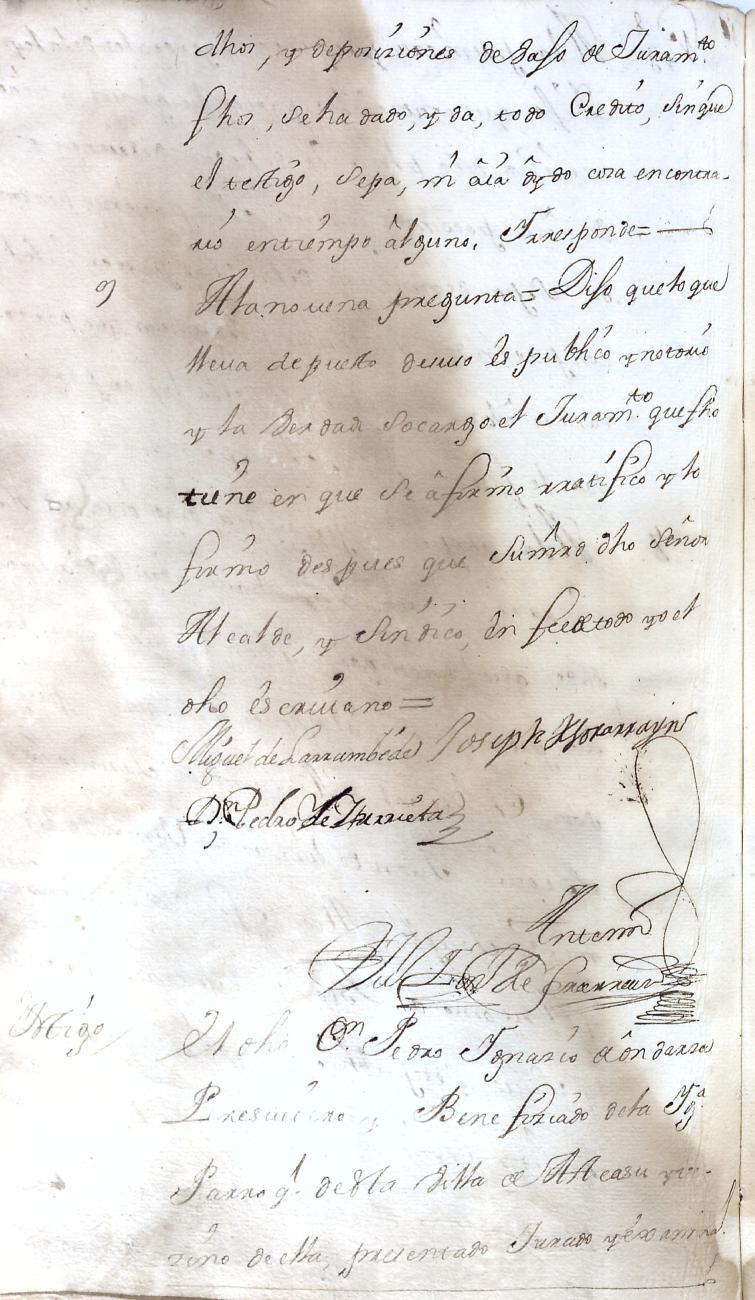 dhos, y deposiziones debaso de Juram.to
fhos, se ha dado, y da, todo Credito, sin que
el testigo, sepa, ni aia oydo cosa encontra-
rio entiempo âlguno. Yrresponde=
9 Ala novena pregunta= Diso que lo que
lleua depuesto desuso ês publico y notorio
y la Verdad Socargo el Juram.to que fho
tiene en que se âfirmo rratifico y lo
firmo despues que Sumrd dho Señor
Alcalde, y Sindico, ên fee de todo yo el
dho êscriuano=
Miguel de Larrumbide Joseph
D.n Pedro de Yturrieta
Antemi
de
Ttigo El dho D.n Pedro Ygnazio de ôndarza
Presuitero y Benefiziado dela Yg.a
Parroq.l desta Villa de Alcasu y ve-
zino de ella, presentado Jurado y êxamina.